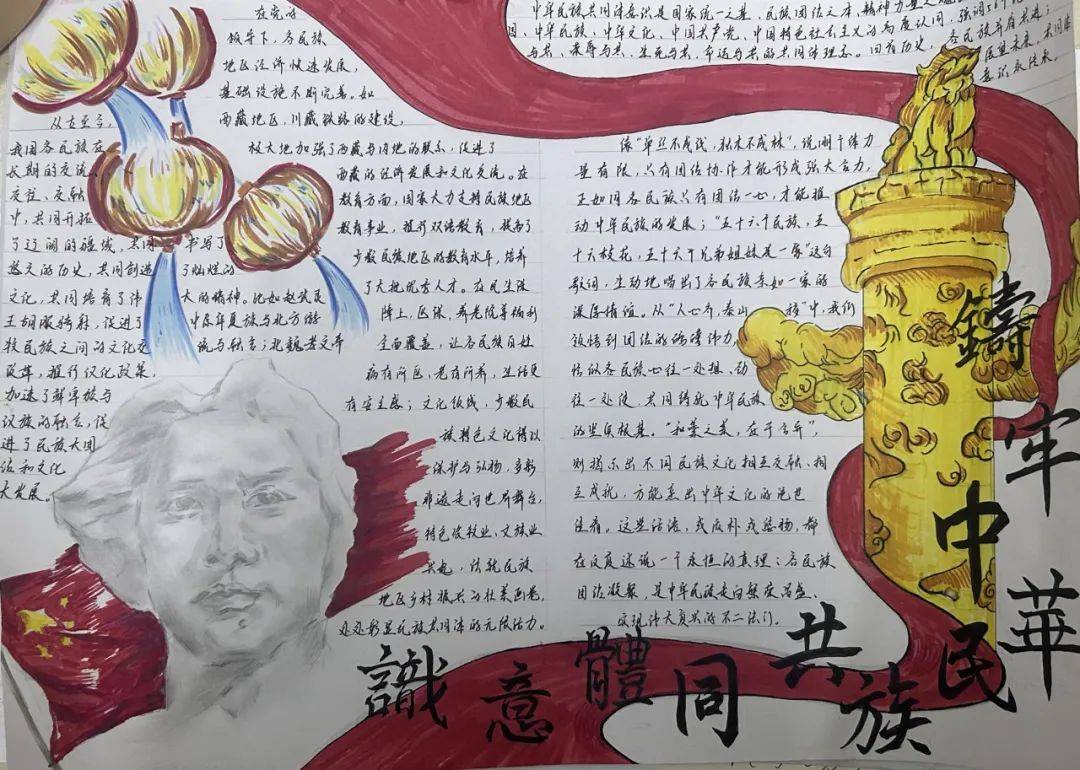 中华民族共同体意识是国家统一之基、民族团结之本、精神力量之
国、中华民族、中华文化、中国共产党、中国特色社会主义的高度认同，强调
与共、荣辱与共、生死与共、命运与共的共同体理念。回首历史，各民族并肩共进；
展望未来，共同体
意识永续永
从古至今，
我国各民族在
长期的交流、
交往、交融
中，共同开拓
了辽阔的疆域，共同书写了
悠久的历史，共同创造了灿烂的
文化，共同培育了伟大的精神。比如赵武灵
王胡服骑射，促进了中原华夏族与北方游
牧民族之间的文化交流与融合；北魏孝文帝
改革，推行汉化政策，
加速了鲜卑族与
汉族的融合，促
进了民族大团
结和文化
大发展。
在党的
领导下，各民族
地区经济快速发展，
基础设施不断完善。如
西藏地区，川藏铁路的建设，
极大地加强了西藏与内地的联系，促进了
西藏的经济发展和文化交流。在
教育方面，国家大力支持民族地区
教育事业，推行双语教育，提高了
少数民族地区的教育水平，培养
了大批优秀人才。在民生保
障上，医保、养老院等福利
全面覆盖，让各民族百姓
病有所医，老有所养，生活更
有安全感；文化领域，少数民
族特色文化得以
保护与弘扬，多彩
非遗走向世界舞台，
特色农牧业、文旅业
兴起，绘就民族
地区乡村振兴的壮美画卷，
处处彰显民族共同体的无限活力。
像“单丝不成线，独木不成林”，说明个体力
量有限，只有团结协作才能形成强大合力，
正如同各民族只有团结一心，才能推
动中华民族的发展；“五十六个民族，五
十六枝花，五十六个兄弟姐妹是一家”这句
歌词，生动地唱出了各民族亲如一家的
深厚情谊。从“人心齐，泰山移”中，我们
领悟到团结的磅礴伟力，
恰似各民族心往一处想，劲
往一处使，共同铸就中华民族
的坚实根基。“和羹之美，在于合异”，
则揭示出不同民族文化相互交融、相
互成就，方能
这些话语，或质朴或
在反复述说一个永恒的真理：各民族
团结凝聚，是中华民族走向繁荣昌盛、
实现伟大复兴的不二法门。
鑄
牢
中
華
民
族
共
同
體
意
識